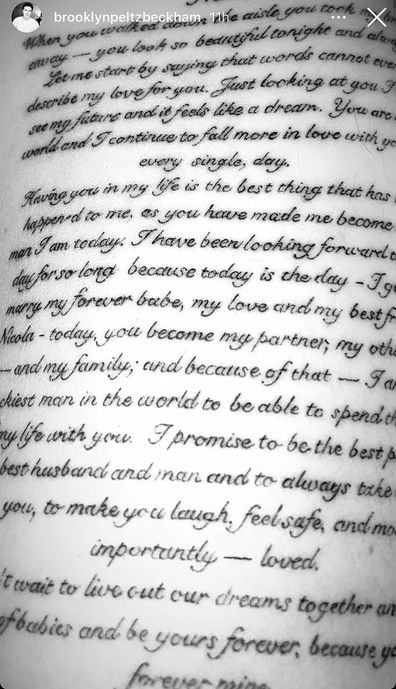 brooklynpeltzbeckham 11h
When you walked down the aisle you took
away — you look so beautiful tonight and
Let me start by saying that words cannot
describe my love for you. Just looking at you I
see my future and it feels like a dream. You are
world and I continue to fall more in love with
every single, day.
Having you in my life is the best thing that has
happened to me, as you have made me become
man I am today. I have been looking forward
day for so long because today is the day – I
marry my forever babe, my love and my best
Nicola - today, you become my partner, my
— and my family; and because of that — I
man in the world to be able to spend
my life with you. I promise to be the best
best husband and man and to always take
you, to make you laugh, feel safe, and
importantly — loved.
wait to live out our dreams together
of babies and be yours forever, because
forever mine